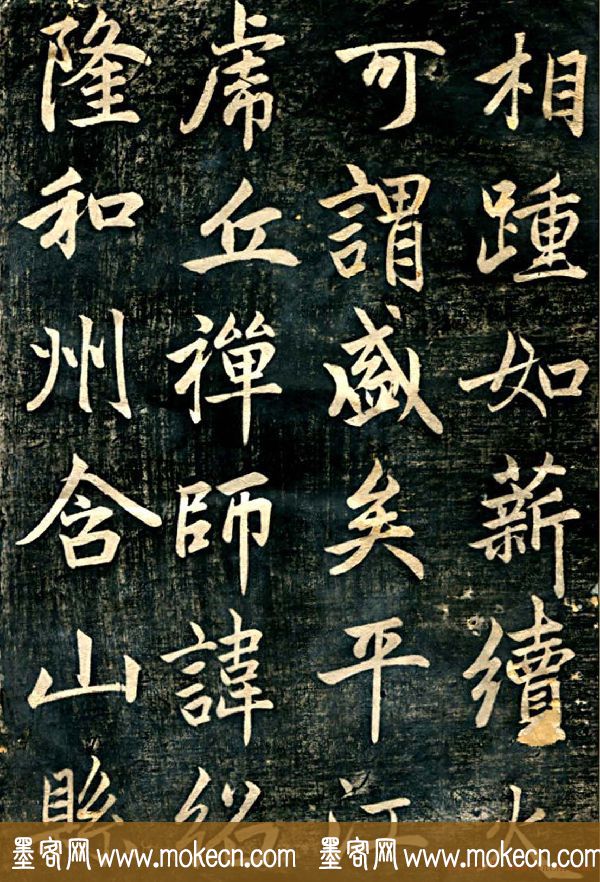 相踵如薪續火
可謂盛矣平江
虎丘禪師諱紹
隆和州含山縣
墨客网 www.mokecn.com 墨客网 www.mokecn.com